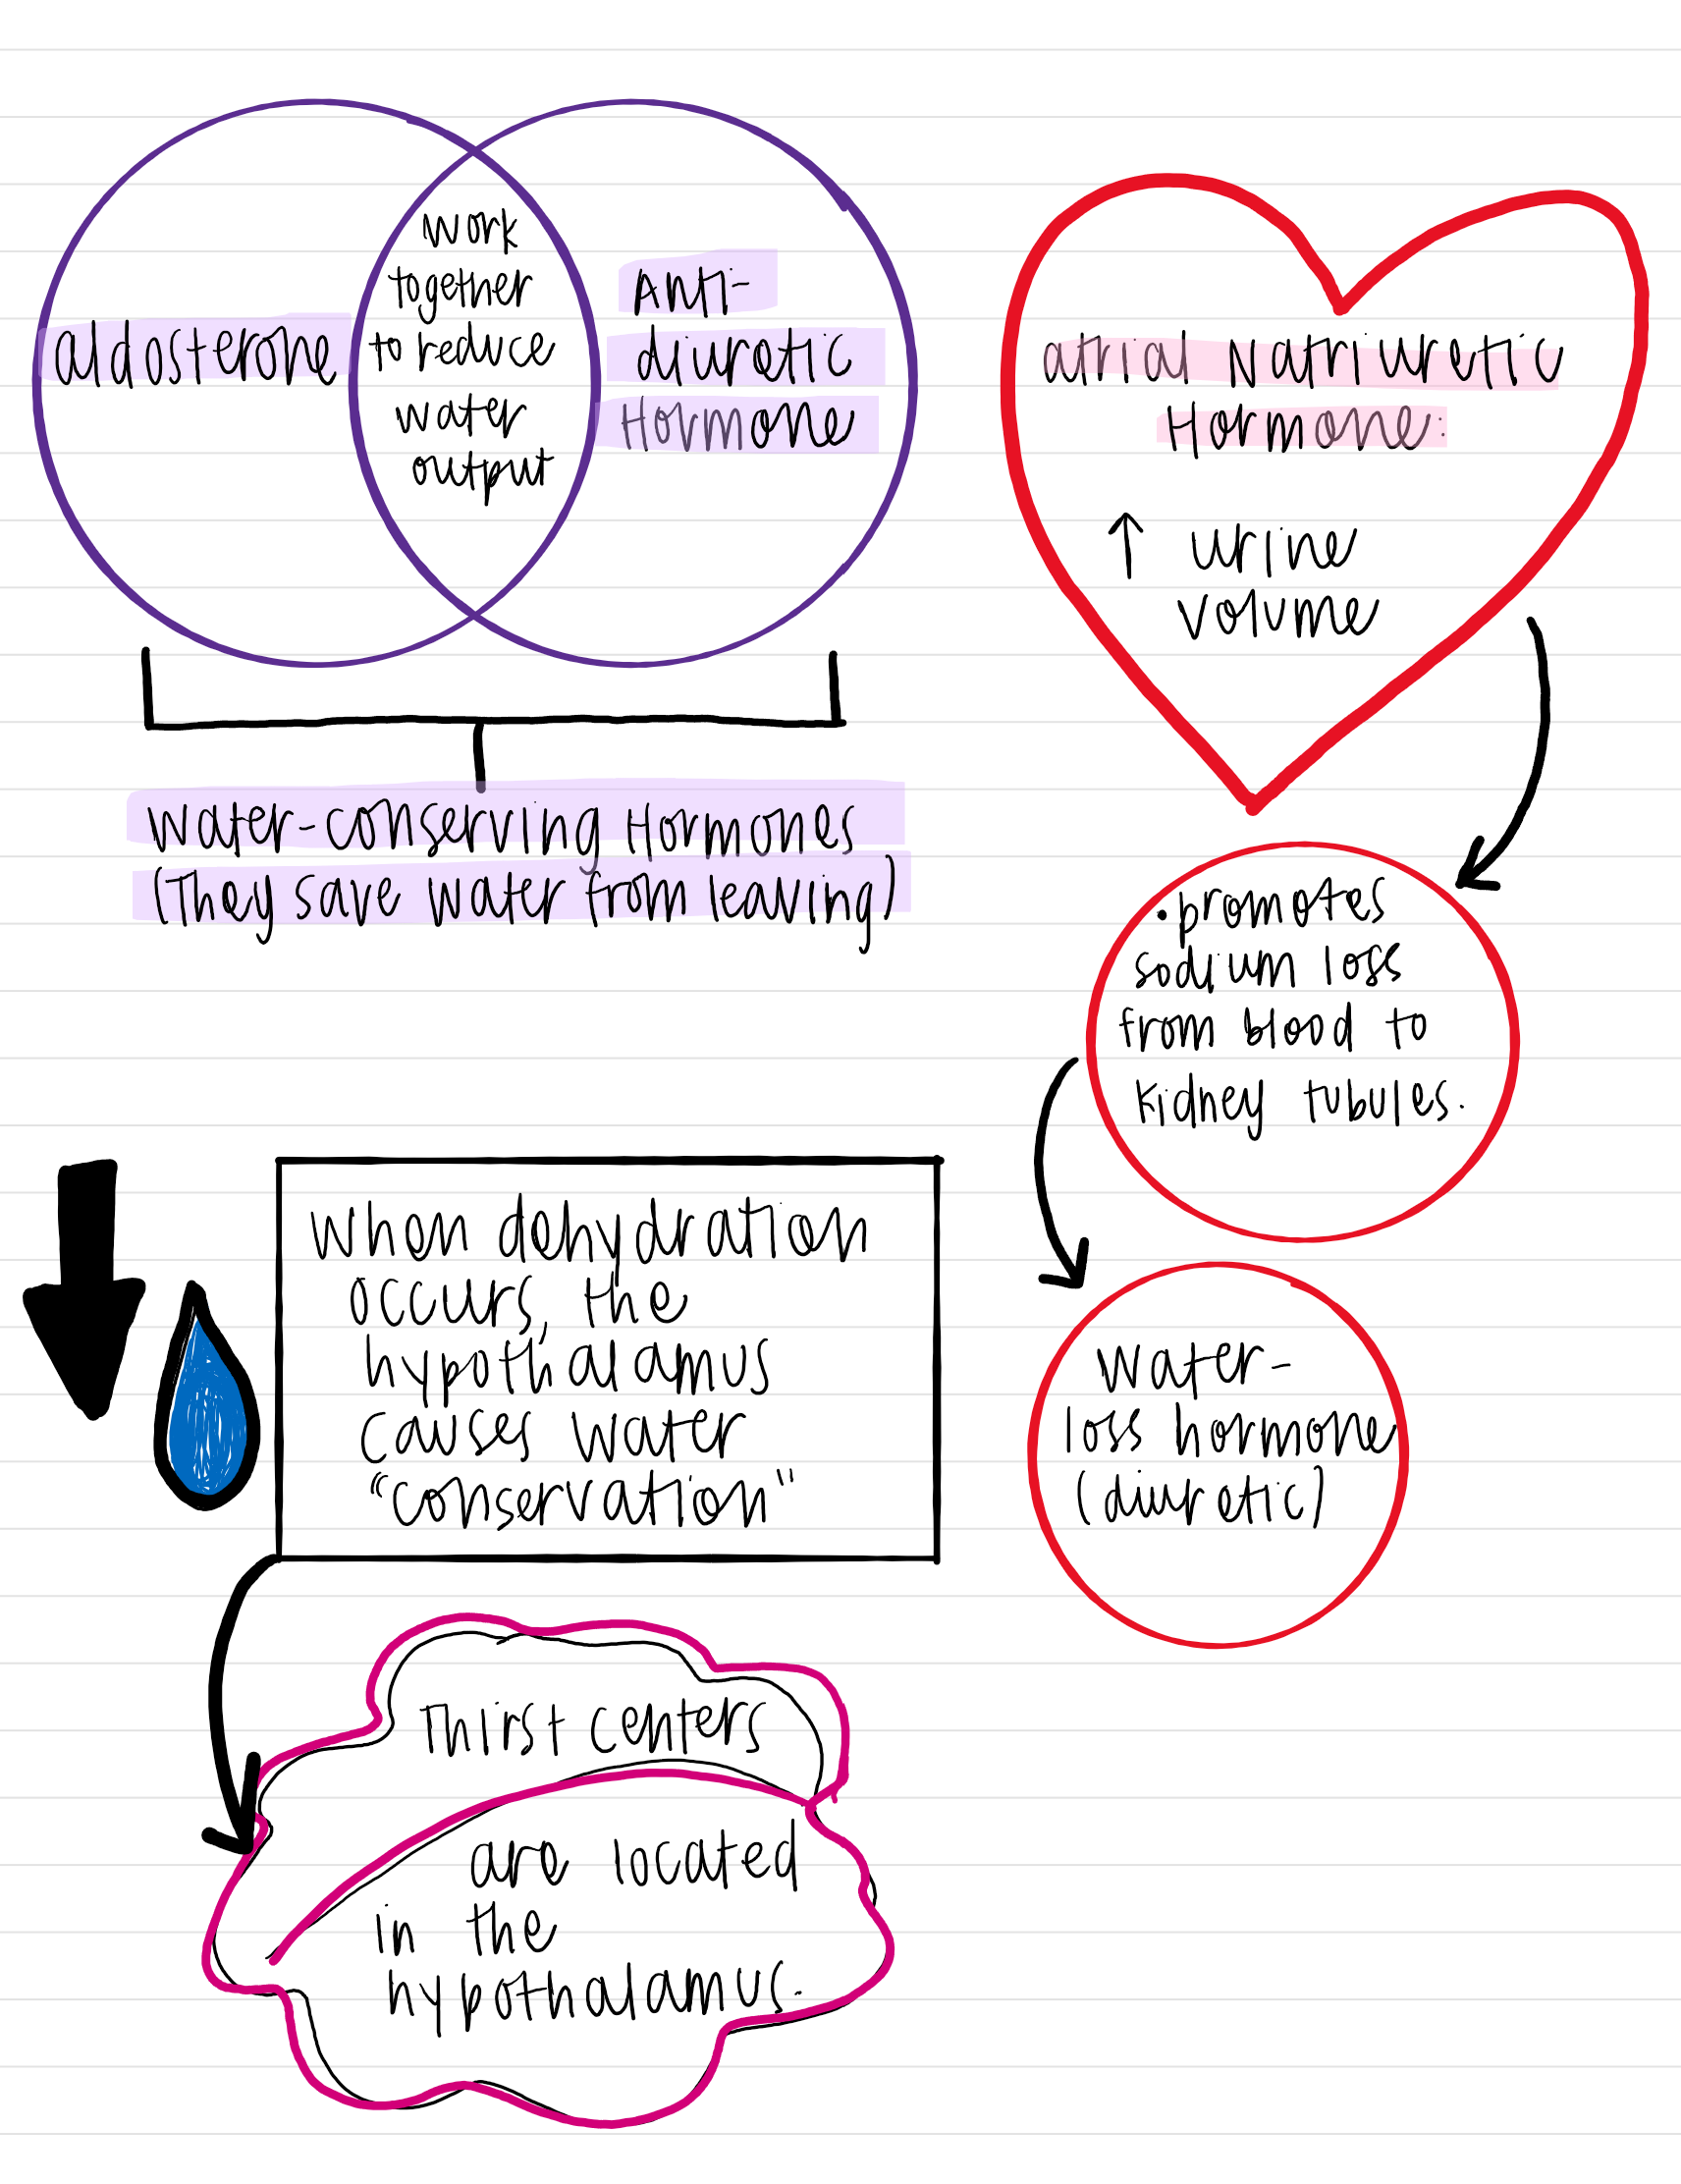 aldosterone
work
together
to reduce
water
output
Anti-
diuretic
Hormone
Water-conserving Hormones
(They save water from leaving)
atrial Natriuretic
Hormone:
↑ urine
volume
• promotes
sodium loss
from blood to
kidney tubules.
Water-
loss hormone
(diuretic)
When dehydration
occurs, the
hypothalamus
causes water
"conservation"
Thirst centers
are located
in the
hypothalamus.